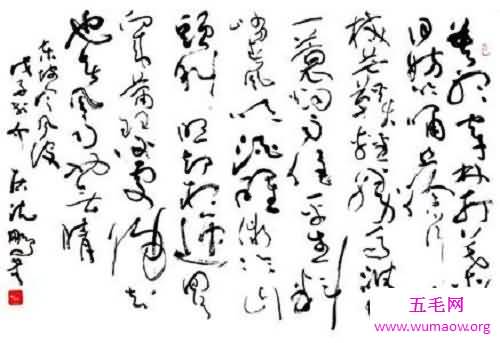 莫听穿林打葉声
何妨吟啸且徐行竹
杖芒鞋轻胜马谁
一蓑烟雨任平生料
峭春风吹酒醒微冷山
头斜照却相迎回首
向来萧瑟处归去
也无风雨也无晴
东坡定风波
戊子 沈鹏书
五毛网
www.wumaow.org